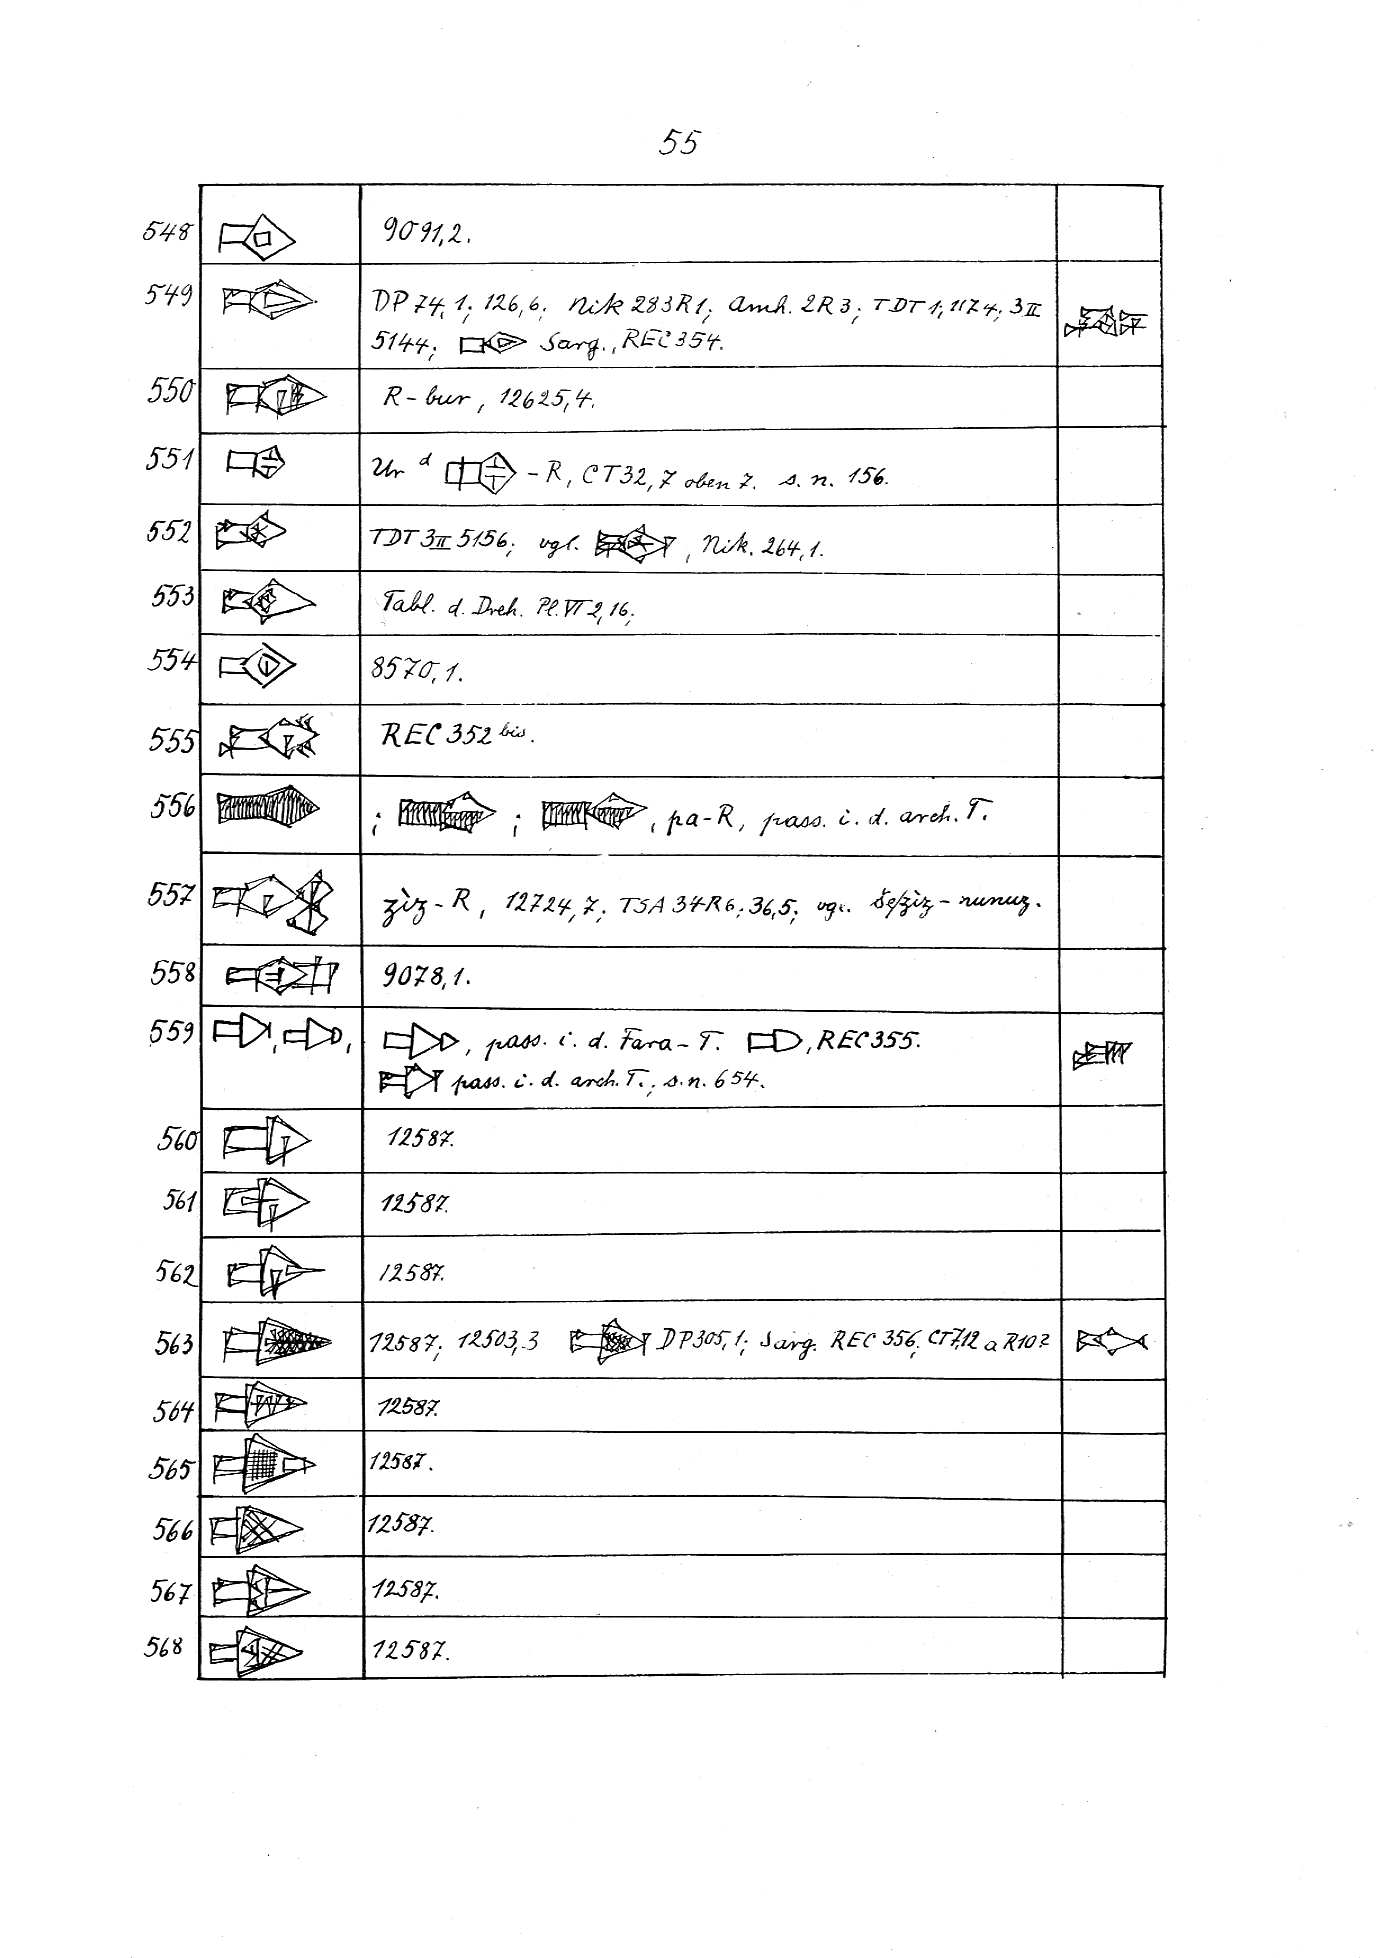 55
548 9091,2.
549 DP 74,1; 126,6; Nik 283 R 1; Amh. 2 R 3; TDT 1, 1174; 3 II
5144; Sarg., REC 354.
550 R-bur, 12625,4.
551 Ur d -R, CT 32, 7 oben 7. s. n. 156.
552 TDT 3 II 5156; vgl. , Nik. 264,1.
553 Tabl. d. Dreh. Pl. VI 2,16;
554 8570,1.
555 REC 352 bis.
556 ; ; , pa-R, pass. i. d. arch. T.
557 zìz-R, 12724,7; TSA 34 R 6; 36,5; vgl. še/zìz-nunuz.
558 9078,1.
559 , , , pass. i. d. Fara-T. , REC 355.
pass. i. d. arch. T.; s. n. 654.
560 12587.
561 12587.
562 12587.
563 12587; 12503,3 DP 305,1; Sarg. REC 356; CT 7,12 a R 10?
564 12587.
565 12587.
566 12587.
567 12587.
568 12587.